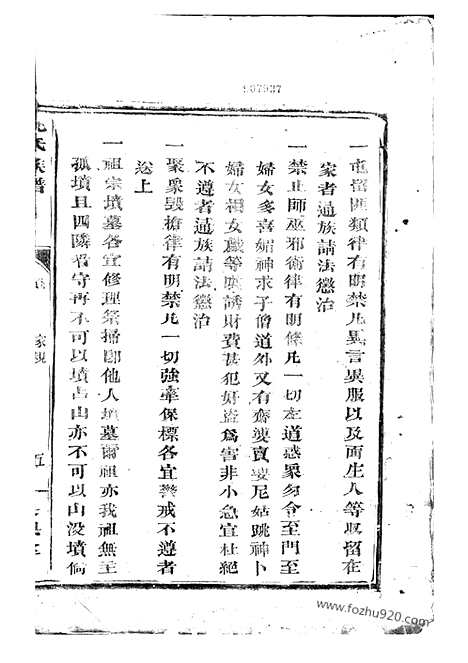 907937
一屯留匪類律有明禁凡異言異服以及面生人等收留在
家者通族請法懲治
一禁止師巫邪術律有明條凡一切左道惑衆勿令至門至
婦女多喜媚神求子僧道外又有齋婆賣婆尼姑跳神卜
婦女相女戲等哄誘財費甚犯奸盗爲害非小急宜杜絕
不遵者通族請法懲治
一聚衆毀搶律有明禁凡一切強牽保標各宜警戒不遵者
送上
一祖宗墳墓各宜修理祭掃卽他人墳墓爾祖亦我祖無主
孤墳且四隣看守再不可以墳占山亦不可以山没墳倘
氏族譜
家規
五
www.fozhu920.com